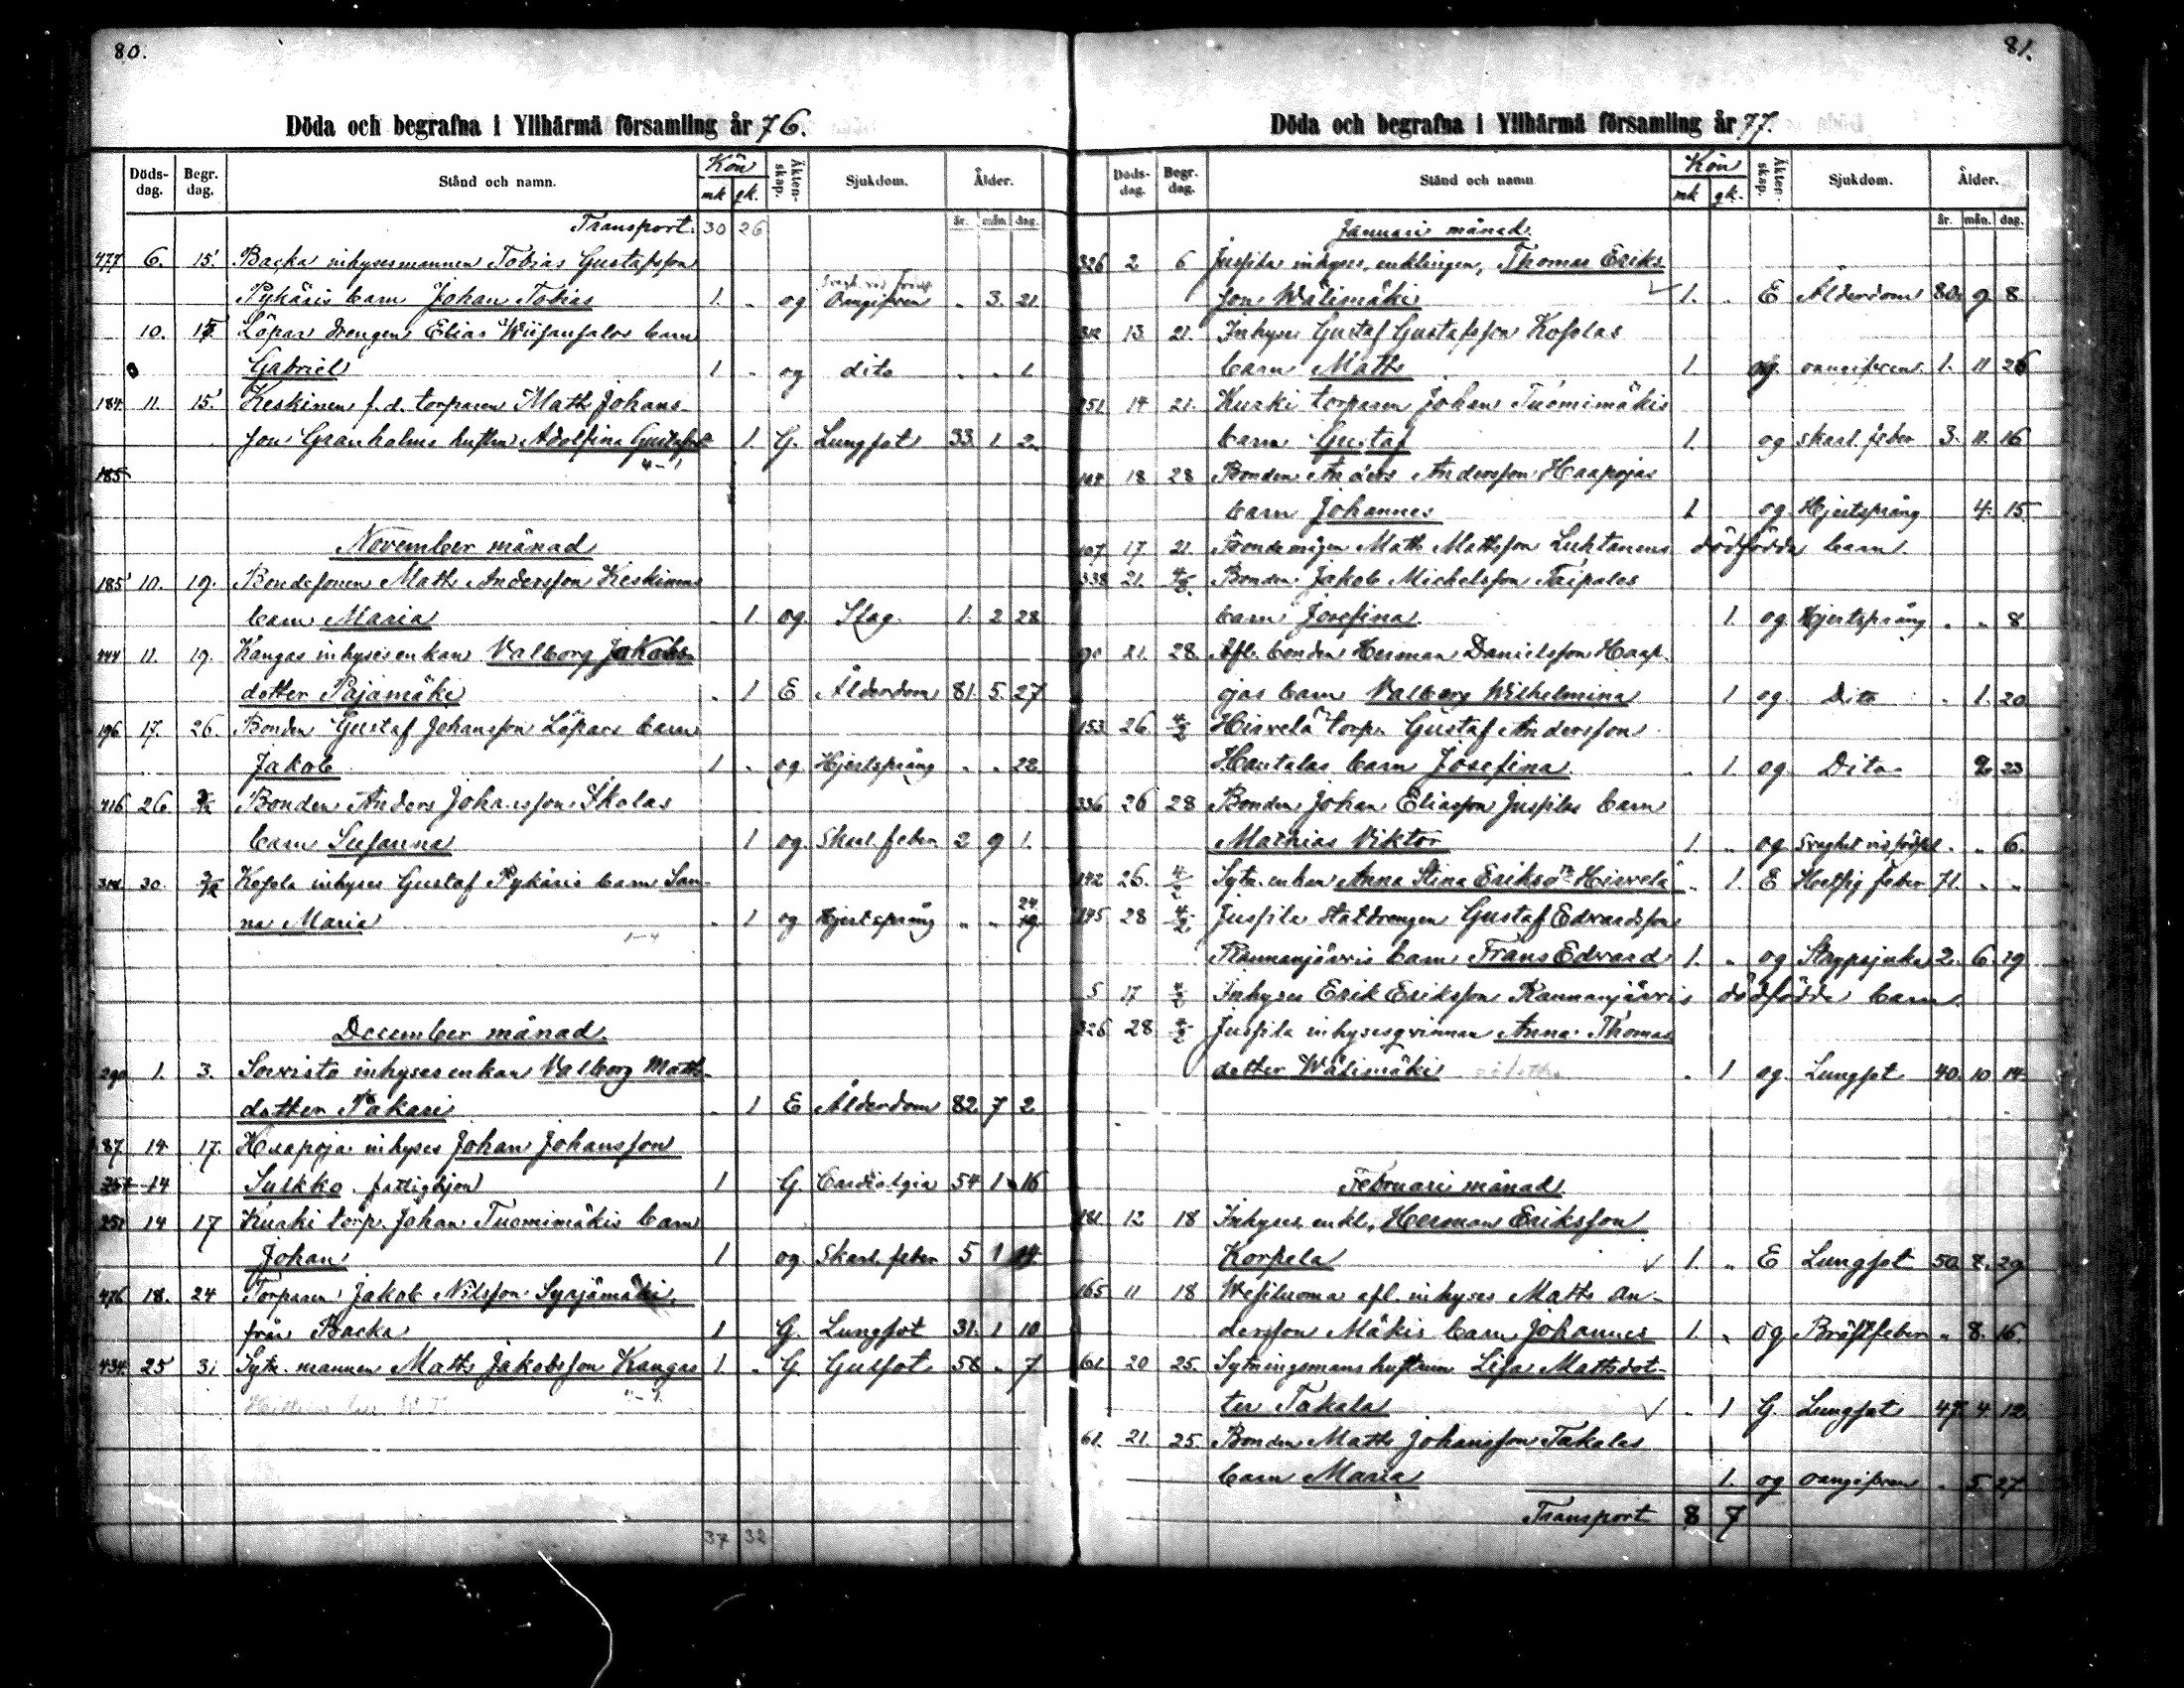 80.
Döda och begrafna i Ylihärmä församling år 76.
Döds-dag. Begr. dag. Stånd och namn. Kön mk qk. Äktenskap. Sjukdom. Ålder.
Transport. 30 26 år. mån. dag.
477 6. 15. Backa inhysesmannen Tobias Gustafsson
Pykäris barn Johan Tobias 1. „ og Oangifven „ 3. 21.
10. 15 Löpar drengen Elias barn
Gabriel 1 „ og dito „ „ 1
184 11. 15. Keskinen f. d. torparen Matts Johans-
son Granholms hustru Adolfina 1. G. Lungsot 33. 1 2.
185
November månad
185 10. 19. Bondesonen Matts Andersson Keskinens
barn Maria „ 1. og Slag. 1. 2 28
444 11. 19. Kangas inhysesenkan Valborg Jakobs-
dotter Pajamäki „ 1 E Ålderdom 81. 5. 27
196 17. 26. Bonden Gustaf Johansson Löpars barn
Jakob 1 „ og Hjertsprång „ „ 22
416 26. Bonden Anders Johansson Skolas
barn Susanna 1 og Skarl. feber 2 9 1.
30. Kosola inhyses Gustaf Pykäris barn San-
na Maria „ 1 og Hjertsprång „ „ 24
December månad.
290 1. 3. Soivisto inhysesenkan Valborg Matts-
dotter Pakari „ 1 E Ålderdom 82. 7 2
87 14 17. Haapoja inhyses Johan Johansson
14 Sulkko. fattighjon 1 G. Cardialgia 54 1 16
251 14 17 Kuoki torp. Johan Tuomimäkis barn
Johan 1 og Skarl. feber 5 1
476 18. 24 Torparen Jakob Nilsson Syrjämäki,
från Backa 1 G. Lungsot 31. 1 10
434. 25 31 Sytn. mannen Matts Jakobsson Kangas 1. „ G. Gulsot 58 „ 7
37 32
81.
Döda och begrafna i Ylihärmä församling år 77.
Döds-dag. Begr. dag. Stånd och namn Kön mk qk. Äktenskap. Sjukdom. Ålder.
Januari månad. år. mån. dag.
326 2 6 Jussila inhyses, enklingen, Thomas Eriks-
son Wälimäki 1. „ E Ålderdom 80. 9 8
312 13. 21. Inhyses Gustaf Gustafsson Kosolas
barn Matts 1. og. oangifven 1. 11 26
251 14 21. Kuoki torparen Johan Tuomimäkis
barn Gustaf 1. og skarl. feber 3. 11. 16
104 18 28 Bonden Anders Andersson Haapojas
barn Johannes 1 og Hjertsprång 4. 15.
107 17 21. Bondemågen Matts Mattsson Luhtanens dödfödda barn.
338 21. 4/2. Bonden Jakob Michelsson Taipales
barn Josefina. 1. og. Hjertsprång „ „ 8
21. 28. Afl. bonden Herman Danielsson Haap-
ojas barn Valborg Wilhelmina 1 og Dito „ 1. 20
153 26. 4/2 Hirvelä torp. Gustaf Andersson
Hautalas barn Josefina. „ 1. og Dito 2. 23
336 26 28 Bonden Johan Eliasson Jussilas barn
Mathias Viktor 1. „ og Svaghet vid födsel „ „ 6.
142 26. 4/2 Sytn. enkan Anna Stina Eriksd:r Hirvelä „ 1. E Hetsig feber 71. „ „
145 28 4/2 Jussila statdrengen Gustaf Edvardsson
Raumanjärvis barn Frans Edvard 1. „ og Slagsjuka 2. 6. 19
5 17 4/2 Inhyses Erik Eriksson Raumanjärvis dödfödda barn.
326 28 4/2 Jussila inhysesqvinnan Anna Thomas
dotter Wälimäki „ 1 og Lungsot 40. 10 14
Februari månad
181 12 18 Inhyses enkl. Herman Eriksson
Korpela 1. „ E Lungsot 50. 2. 29
165 11 18 Wesiluoma afl. inhyses Matts An-
dersson Mäkis barn Johannes 1. „ og Bröstfeber „ 8. 16.
61. 20 25. Sytningsmans hustrun Lisa Mattsdot-
ter Takala „ 1 G. Lungsot 47. 4. 12.
61. 21. 25. Bonden Matts Johansson Takalas
barn Maria 1. og oangifven „ 5 27
Transport 8 7